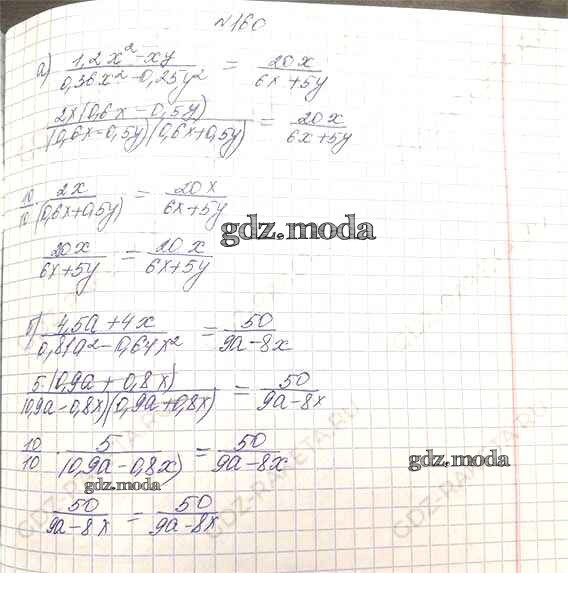 №160
а) (1,2x² - xy)/(0,36x² - 0,25y²) = 20x/(6x + 5y)
2x(0,6x - 0,5y)/((0,6x - 0,5y)(0,6x + 0,5y)) = 20x/(6x + 5y)
10/10 · 2x/(0,6x + 0,5y) = 20x/(6x + 5y)
gdz.moda
20x/(6x + 5y) = 20x/(6x + 5y)
б) (4,5a + 4x)/(0,81a² - 0,64x²) = 50/(9a - 8x)
5(0,9a + 0,8x)/((0,9a - 0,8x)(0,9a + 0,8x)) = 50/(9a - 8x)
10/10 · 5/(0,9a - 0,8x) = 50/(9a - 8x)
gdz.moda
gdz.moda
50/(9a - 8x) = 50/(9a - 8x)
GDZ-RAKETA.RU
GDZ-RAKETA.RU